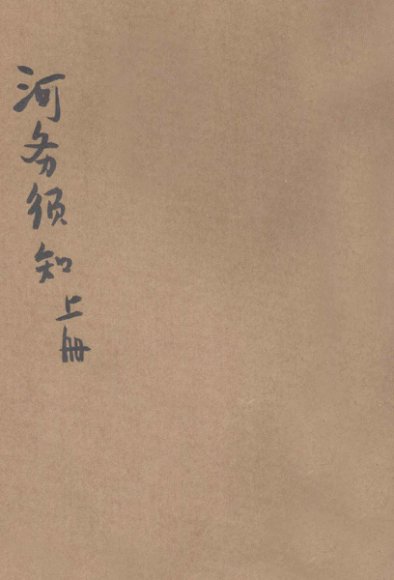 河务须知上册